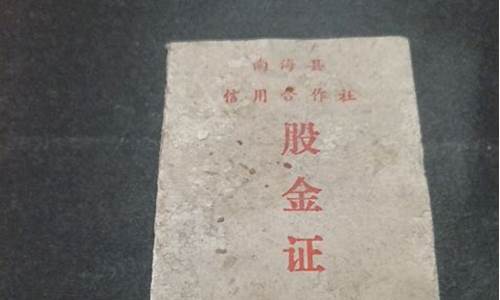 南海县
信用合作社
股
金
证